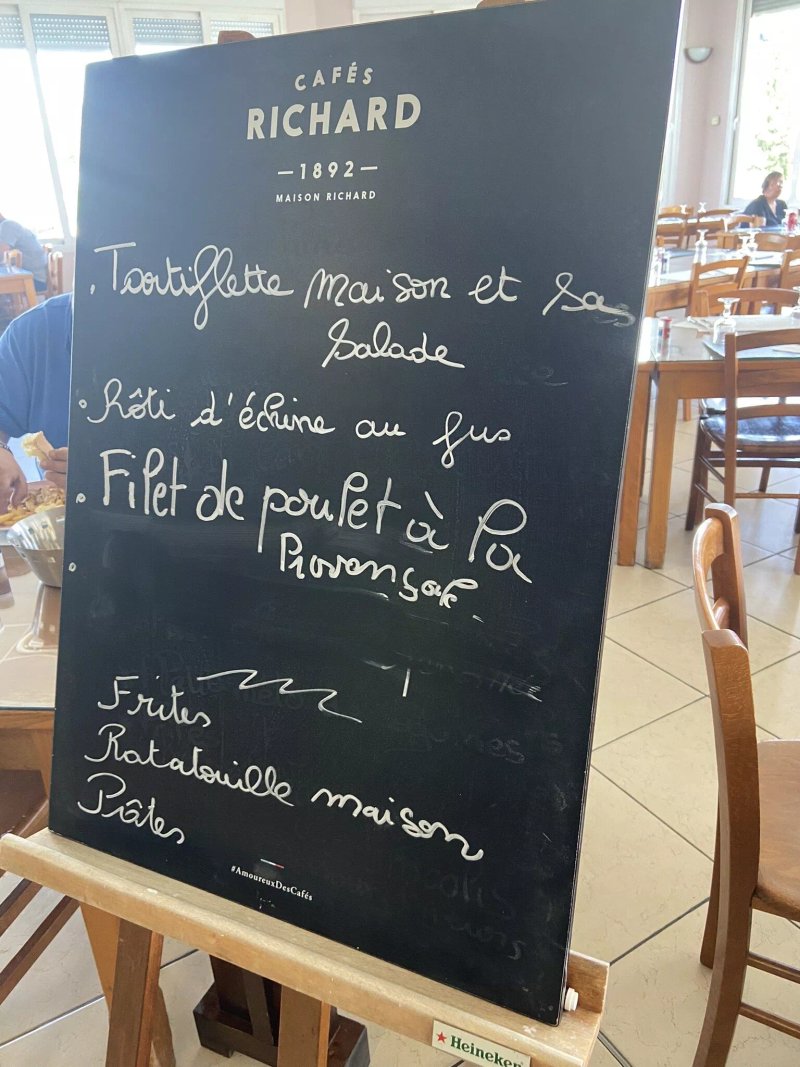 CAFÉS
RICHARD
—1892—
MAISON RICHARD
. Tartiflette maison et sa
salade
. Rôti d'échine au jus
. Filet de poulet à la
Provençale.
Frites
Ratatouille maison
Pâtes
#AmoureuxDesCafés
★ Heineken